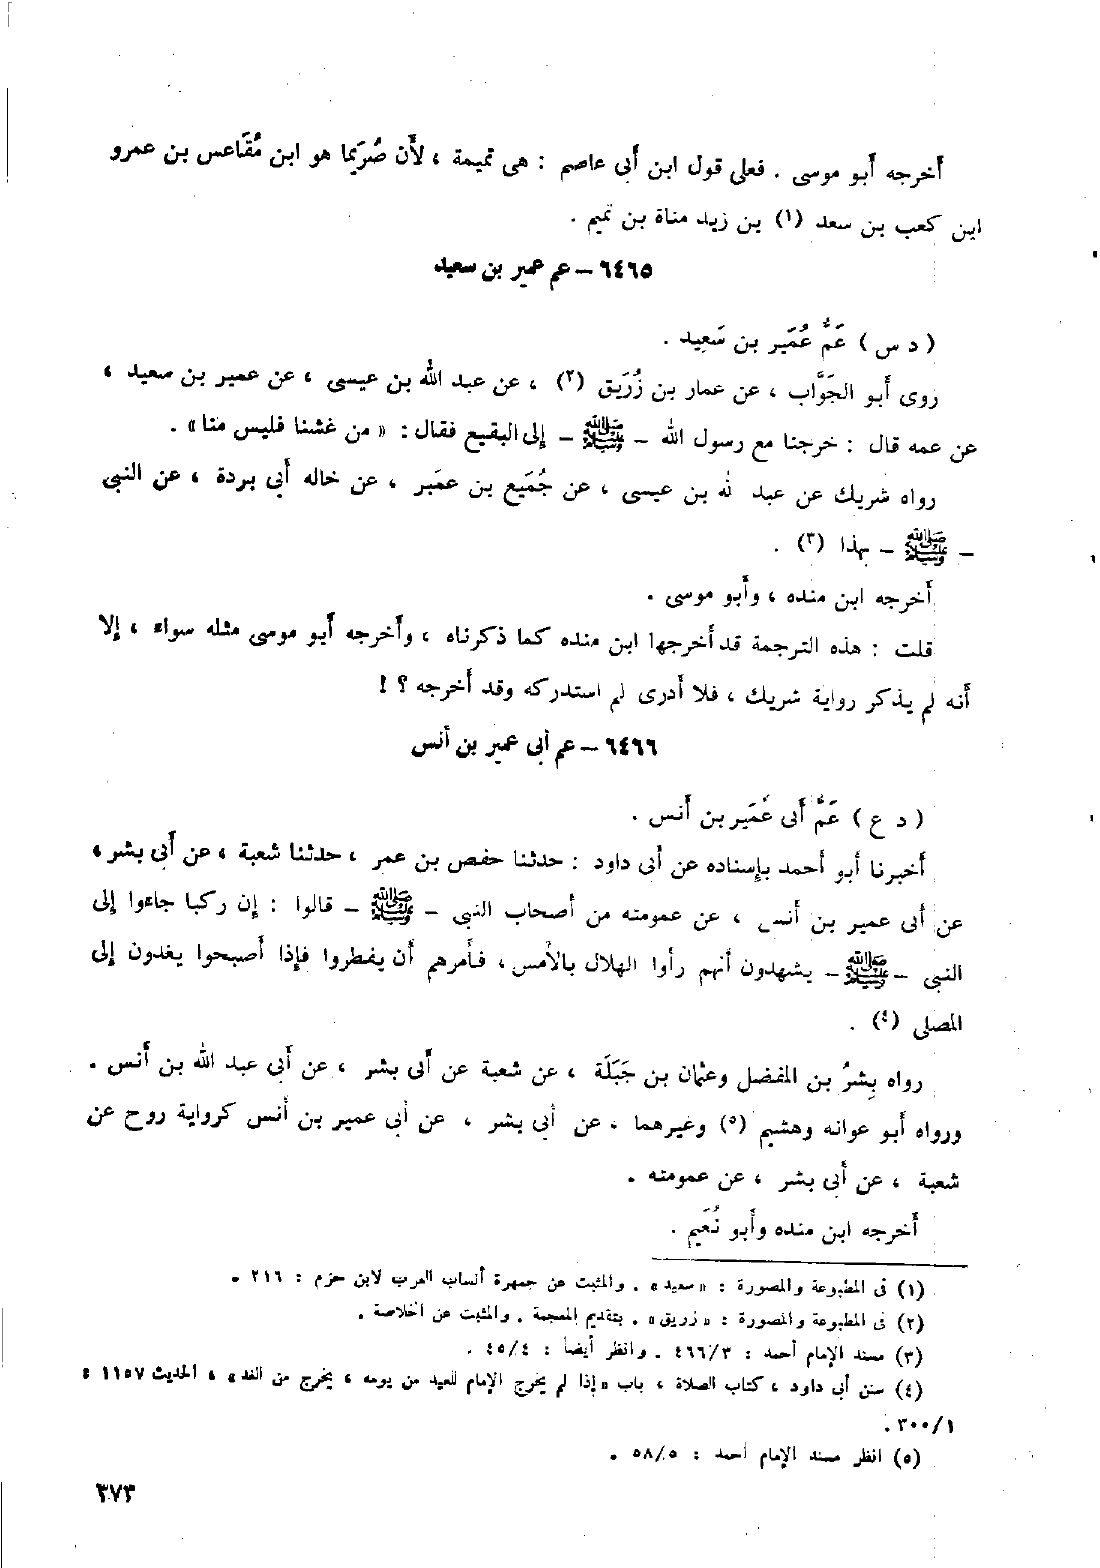 أخرجه أبو موسى . فعلى قول ابن أبى عاصم : هى تميمة ، لأن صُرَيما هو ابن مُقَاعس بن عمرو
ابن كعب بن سعد (١) بن زيد مناة بن تميم .
٦٤٦٥ – عم عمير بن سعيد
( د س ) عَمُّ عُمَير بن سَعِيد .
روى أبو الجَوَّاب ، عن عمار بن زُرَيق (٢) ، عن عبد الله بن عيسى ، عن عمير بن سعيد ،
عن عمه قال : خرجنا مع رسول الله – ﷺ – إلى البقيع فقال : « من غشنا فليس منا » .
رواه شريك عن عبد لله بن عيسى ، عن جُمَيع بن عمير ، عن خاله أبى بردة ، عن النبى
– ﷺ – بهذا (٣) .
أخرجه ابن منده ، وأبو موسى .
قلت : هذه الترجمة قد أخرجها ابن منده كما ذكرناه ، وأخرجه أبو موسى مثله سواء ، إلا
أنه لم يذكر رواية شريك ، فلا أدرى لم استدركه وقد أخرجه ؟ !
٦٤٦٦ – عم أبى عمير بن أنس
( د ع ) عَمُّ أبى عُمَير بن أنس .
أخبرنا أبو أحمد بإسناده عن أبى داود : حدثنا حفص بن عمر ، حدثنا شعبة ، عن أبى بشر ،
عن أبى عمير بن أنس ، عن عمومته من أصحاب النبى – ﷺ – قالوا : إن ركبا جاءوا إلى
النبى – ﷺ – يشهدون أنهم رأوا الهلال بالأمس ، فأمرهم أن يفطروا فإذا أصبحوا يغدون إلى
المصلى (٤) .
رواه بِشرُ بن المفضل وعثمان بن جَبَلَة ، عن شعبة عن أبى بشر ، عن أبى عبد الله بن أنس .
ورواه أبو عوانه وهشيم (٥) وغيرهما ، عن أبى بشر ، عن أبى عمير بن أنس كرواية روح عن
شعبة ، عن أبى بشر ، عن عمومته .
أخرجه ابن منده وأبو نُعَيم .
(١) فى المطبوعة والمصورة : « سعيد » . والمثبت عن جمهرة أنساب العرب لابن حزم : ٢١٦ .
(٢) فى المطبوعة والمصورة : « زريق » . بتقديم المعجمة . والمثبت عن الخلاصة .
(٣) مسند الإمام أحمد : ٤٦٦/٣ . وانظر أيضاً : ٤٥/٤ .
(٤) سنن أبى داود ، كتاب الصلاة ، باب « إذا لم يخرج الإمام للعيد من يومه ، يخرج من الغد » ، الحديث ١١٥٧ :
٣٠٠/١ .
(٥) انظر مسند الإمام أحمد : ٥٨/٥ .
٣٧٣